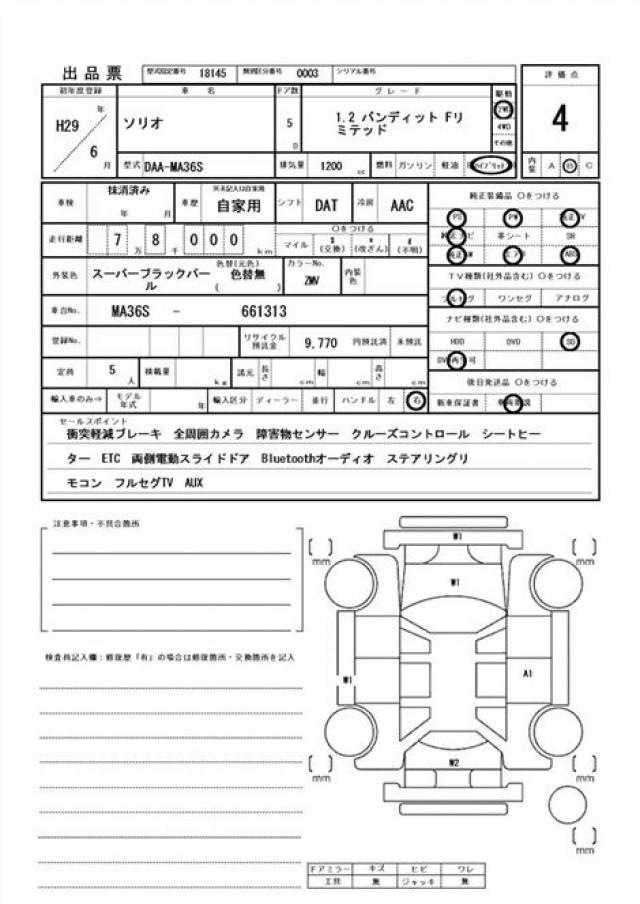 出品票 型式指定番号 18145 類別区分番号 0003 シリアル番号
初年度登録 車 名 ドア数 グレード 駆動 評価点
H29 年 6 月 ソリオ 5 D 1.2 バンディット Fリ 2WD 4
ミテッド 4WD
その他
型式 DAA-MA36S 排気量 1200 cc 燃料 ガソリン 軽油 ハイブリッド 内装 A B C
車検 抹消済み 年 月 車歴 ※未記入は自家用 自家用 シフト DAT 冷房 AAC 純正装備品 〇をつける
PS PW 純正TV
走行距離 7 万 8 千 0 0 0 km 〇をつける マイル $(交換) *(改ざん) #(不明) 純正ナビ 革シート SR
純正AW エアB ABS
外装色 スーパーブラックパー 色替(元色) 色替無 カラーNo. ZMV 内装色 TV種類(社外品含む) 〇をつける
ル ( ) フルセグ ワンセグ アナログ
車台No. MA36S - 661313 ナビ種類(社外品含む) 〇をつける
登録No. リサイクル預託金 9,770 円預託済 未預託 HDD DVD SD
DVD再生可
定員 5 人 積載量 kg 諸元 長さ cm 幅 cm 高さ cm 後日発送品 〇をつける
輸入車のみ⇒ モデル年式 年 輸入区分 ディーラー 並行 ハンドル 左 右 新車保証書
セールスポイント
衝突軽減ブレーキ 全周囲カメラ 障害物センサー クルーズコントロール シートヒー
ター ETC 両側電動スライドドア Bluetoothオーディオ ステアリングリ
モコン フルセグTV AUX
注意事項・不具合箇所
検査員記入欄：修復歴「有」の場合は修復箇所・交換箇所を記入
W1
[ ] mm [ ] mm
W1
W1 A1
W2
[ ] mm [ ] mm
[ ] mm
ドアミラー キズ ヒビ ワレ
工具 無 ジャッキ 無